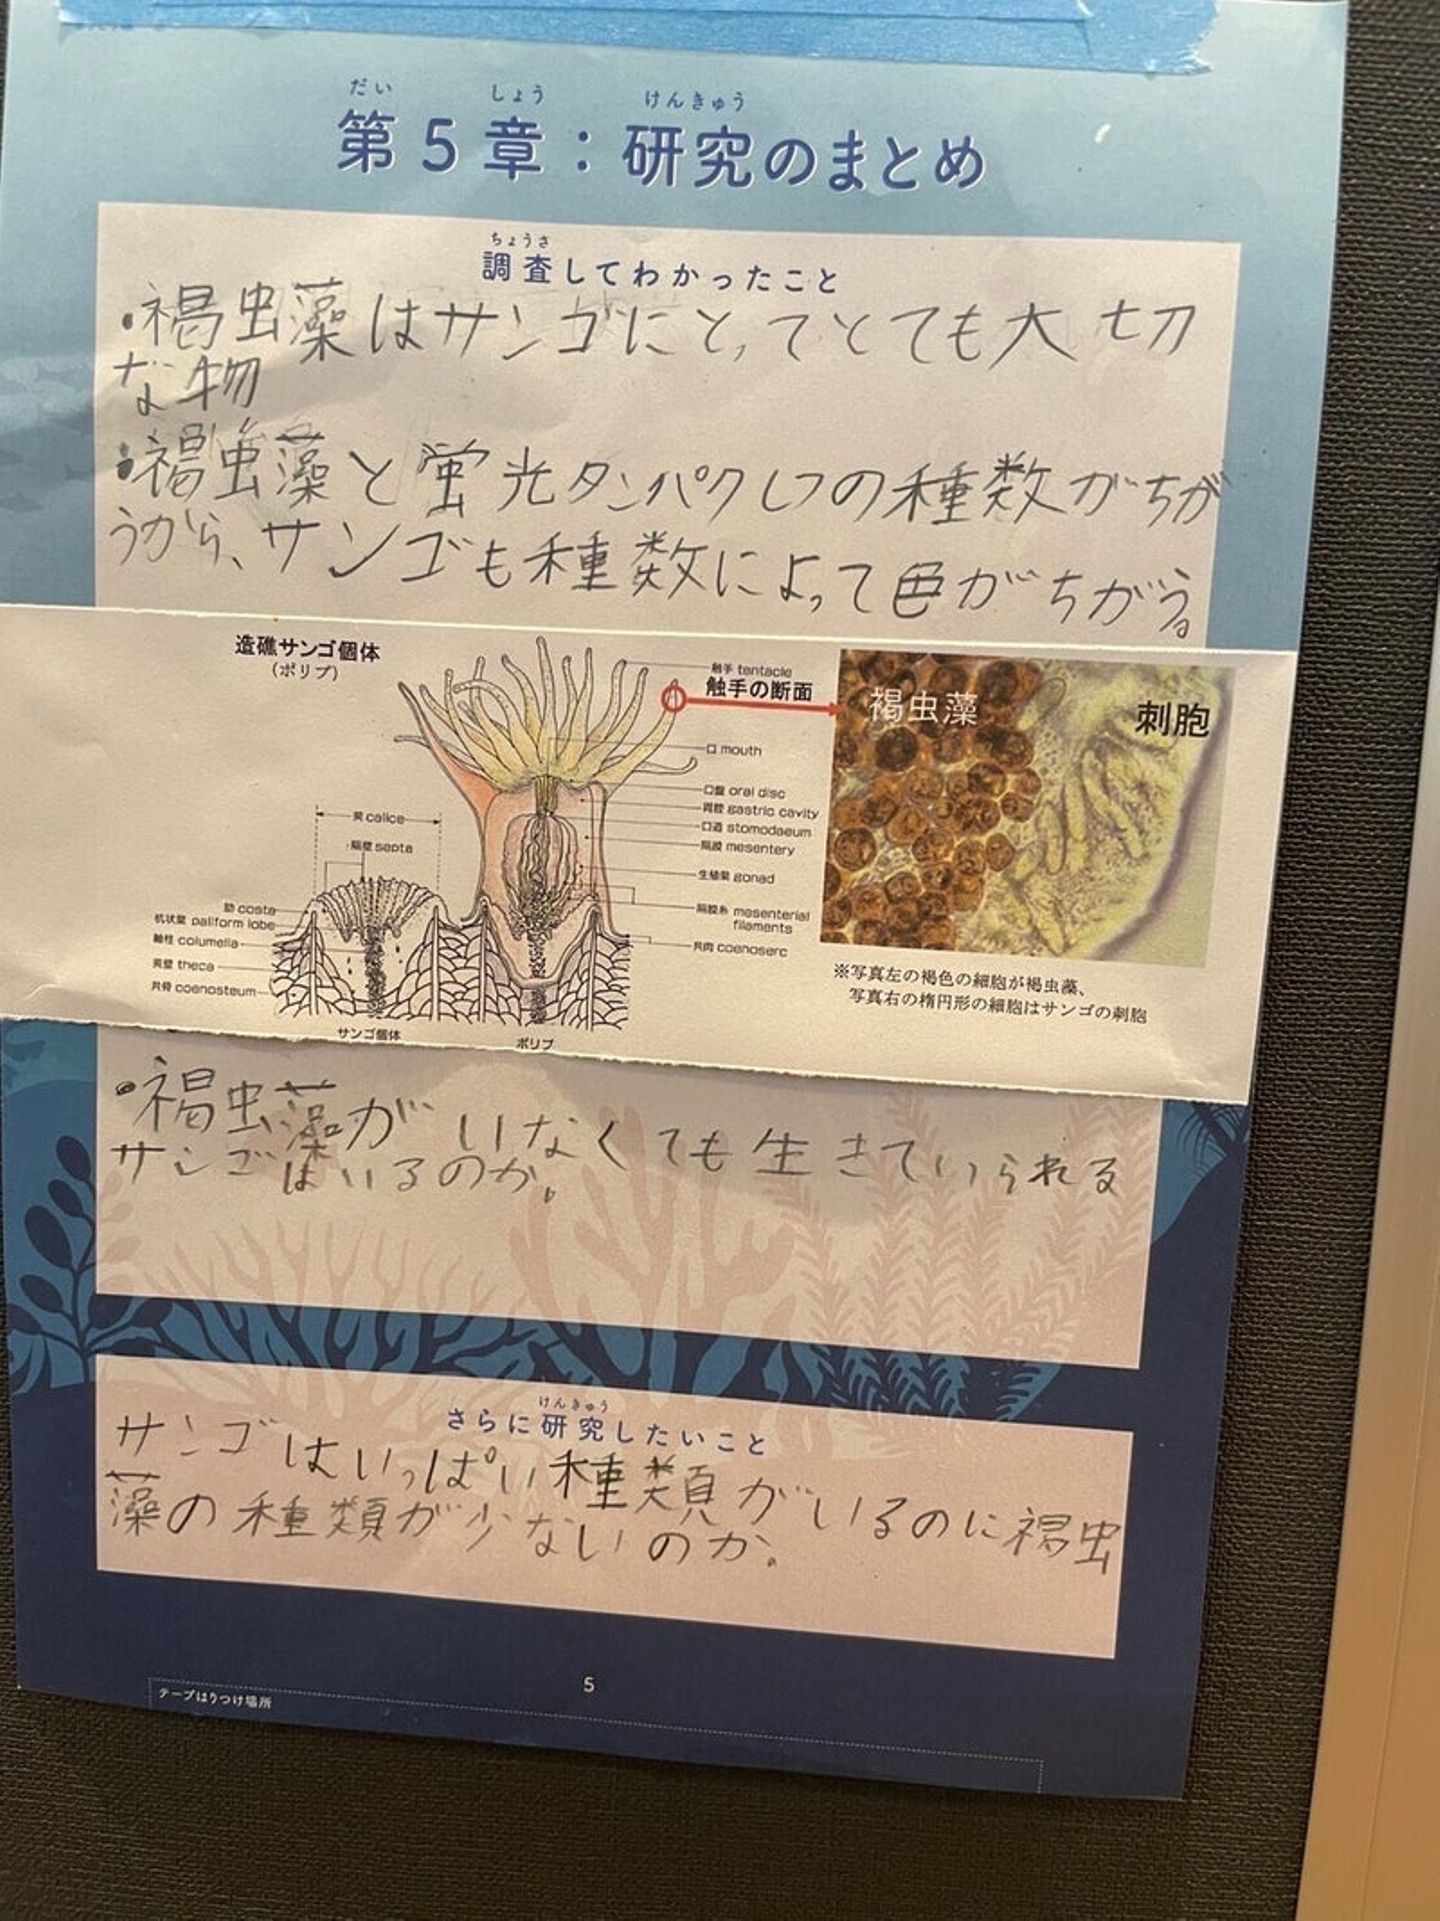 だい しょう けんきゅう
第5章：研究のまとめ
ちょうさ
調査してわかったこと
・褐虫藻はサンゴにとってとても大切
な物
・褐虫藻と蛍光タンパクしつの種数がちが
うから、サンゴも種数によって色がちがう。
造礁サンゴ個体
(ポリプ)
触手 tentacle
触手の断面
褐虫藻
刺胞
口 mouth
口盤 oral disc
胃腔 gastric cavity
口道 stomodaeum
隔膜 mesentery
生殖巣 gonad
隔膜糸 mesenterial
filaments
共肉 coenosarc
莢 calice
隔壁 septa
肋 costa
杭状葉 paliform lobe
軸柱 columella
莢壁 theca
共骨 coenosteum
サンゴ個体
ポリプ
※写真左の褐色の細胞が褐虫藻、
写真右の楕円形の細胞はサンゴの刺胞
・褐虫藻がいなくても生きていられる
サンゴはいるのか。
けんきゅう
さらに研究したいこと
サンゴはいっぱい種類がいるのに褐虫
藻の種類が少ないのか。
5
テープはりつけ場所